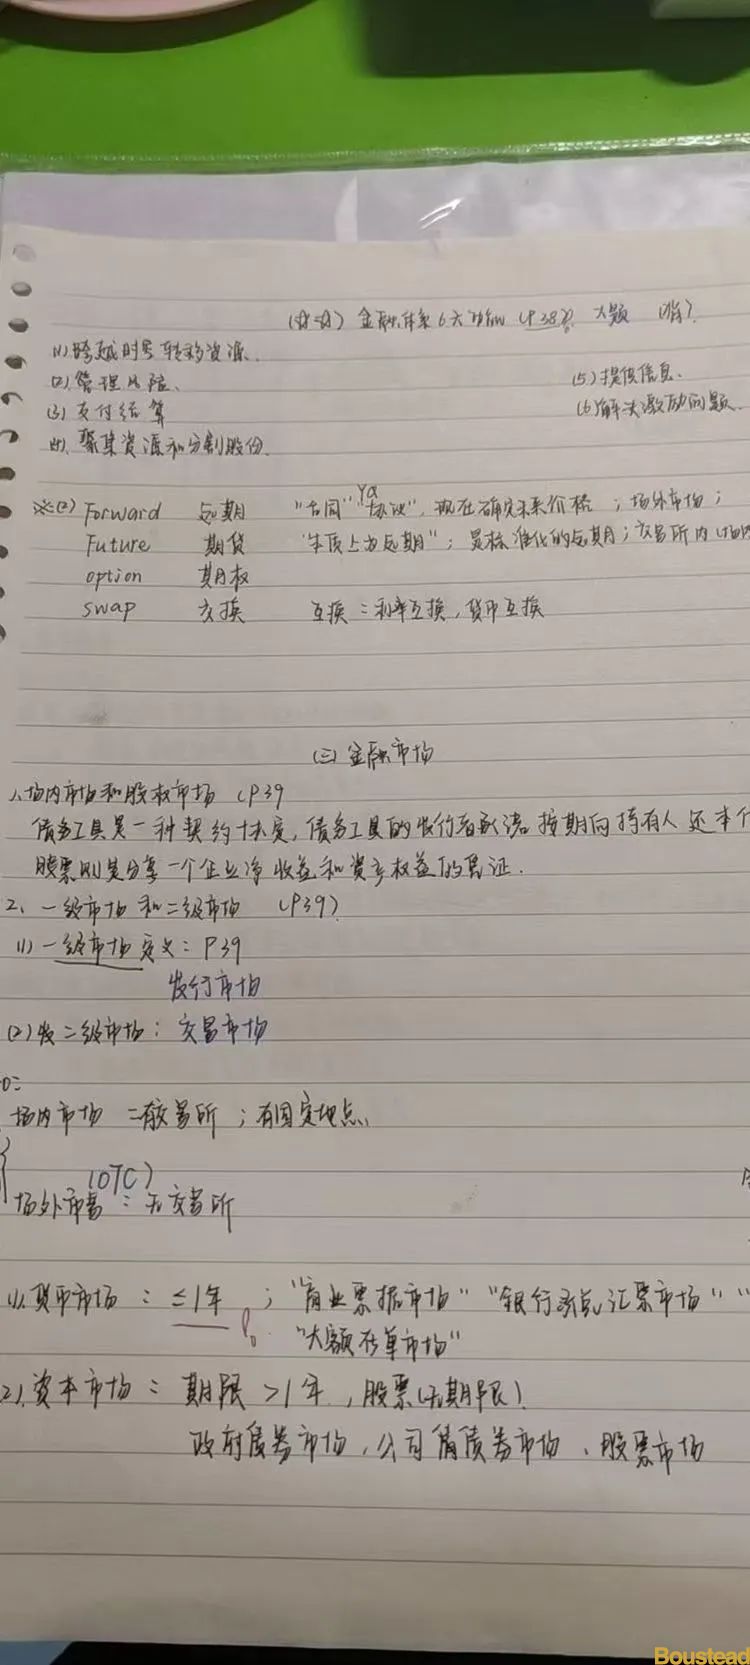 (☆☆) 金融体系6大功能 (P38) 大题 (背)
(1) 跨越时空转移资源.
(2). 管理风险.
(3) 支付结算
(4). 聚集资源和分割股份.
(5) 提供信息.
(6) 解决激励问题.
※(2) Forward 远期 "合同" "协议", 现在确定未来价格 ; 场外市场 ;
Future 期货 "本质上为远期" ; 是标准化的远期 ; 交易所内 (场内
option 期权
swap 交换 互换 : 利率互换, 货币互换
(三) 金融市场
1. 场内市场和股权市场 (P39
债务工具是一种契约, 债务工具的发行者承诺按期向持有人还本付
股票则是分享一个企业净收益和资产权益的凭证.
2. 一级市场和二级市场 (P39)
(1) 一级市场定义: P39
发行市场
(2) 发二级市场: 交易市场
场内市场 : 有交易所 ; 有固定地点.
(OTC)
场外市易 : 无交易所
(1). 货币市场 : ≤1年 ; "商业票据市场" "银行承兑汇票市场" "
"大额存单市场"
2). 资本市场 : 期限 >1年, 股票(无期限)
政府债券市场, 公司债券市场, 股票市场
Boustead